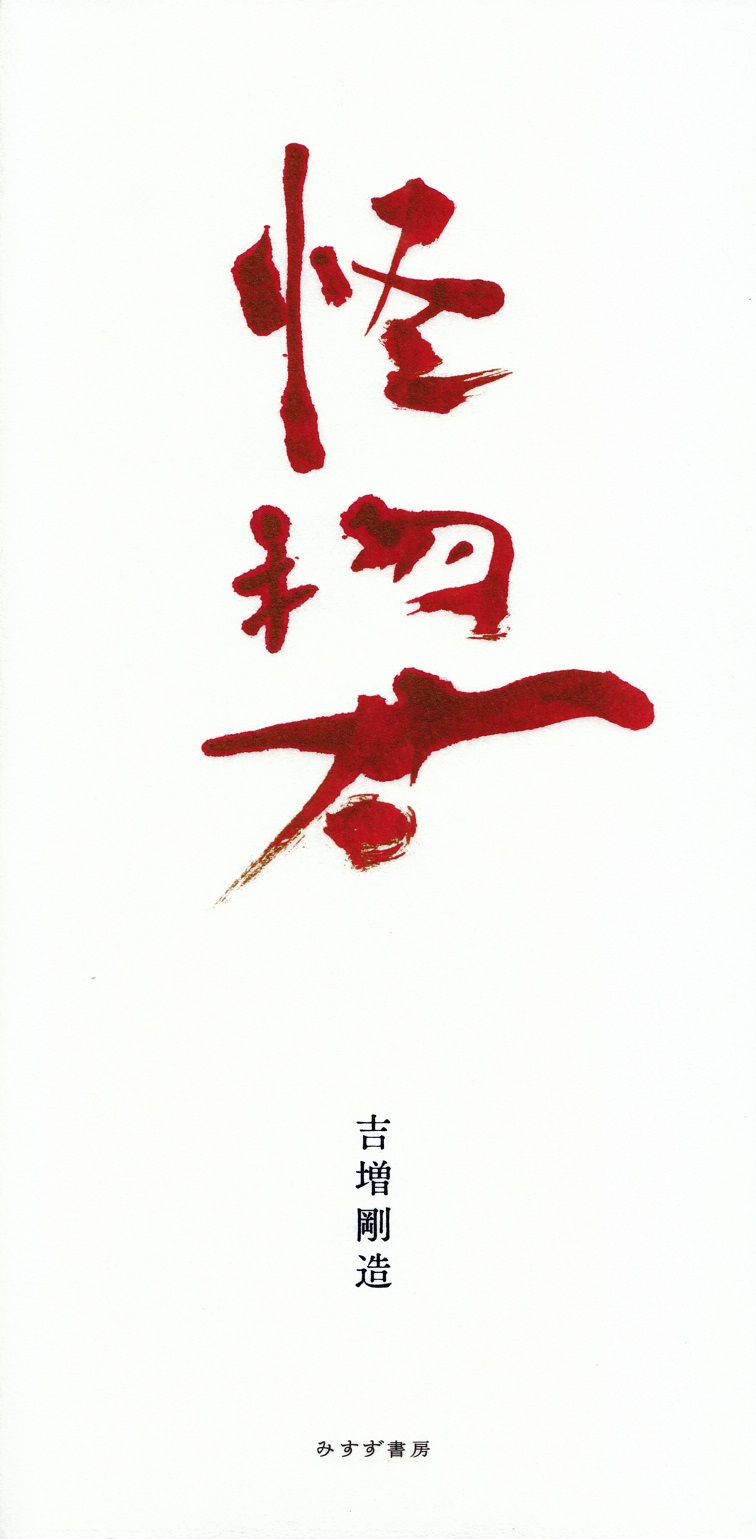 怪物君
吉増剛造
みすず書房